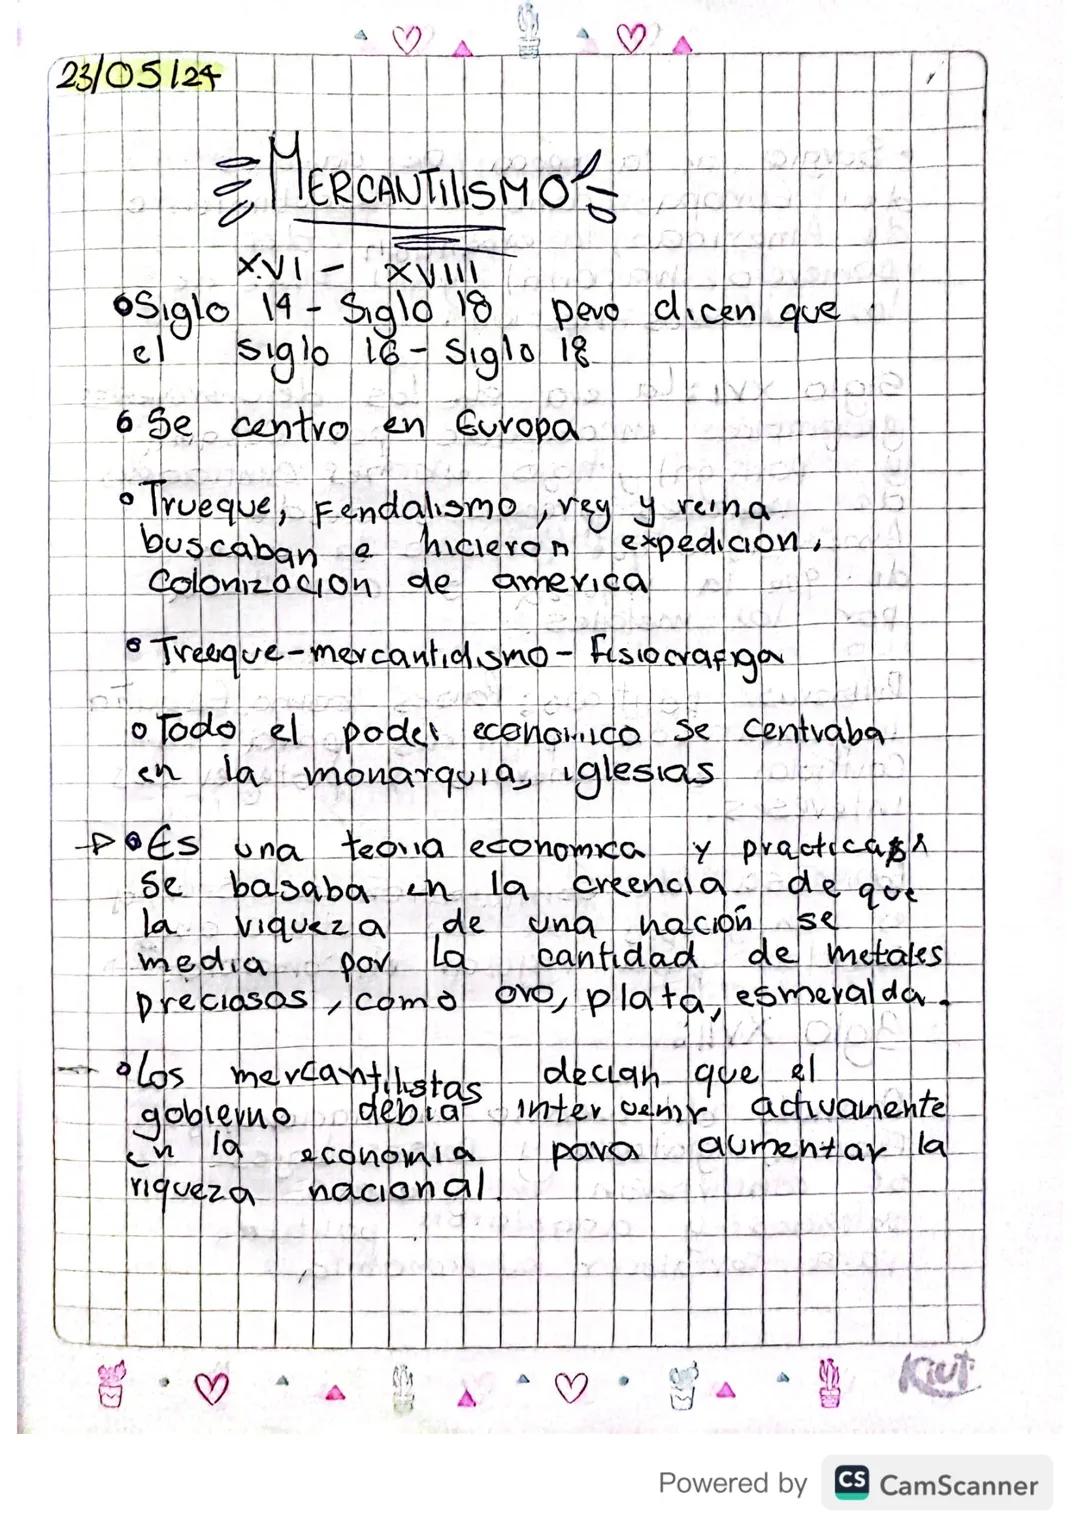 23/05/24
MERCANTILISMO
XVI - XVIII
Siglo 14 - Siglo 18 pero dicen que
el siglo 16 - Siglo 18
Se centro en Europa
Trueque, Fendalismo, rey y reina
buscaban e hicieron expedicion,
Colonizacion de america
Trueque - mercantidismo - Fisiocrafiga
Todo el poder economico se centraba
en la monarquia, iglesias
Es una teoria economica y practica
Se basaba en la creencia de que
la riqueza de una nacion se
media por la cantidad de metales
preciosos, como oro, plata, esmeralda.
Los mercantilistas decian que el
gobierno debia intervenir activamente
en la economia para aumentar la
riqueza nacional.
Kiut
Powered by CS CamScanner